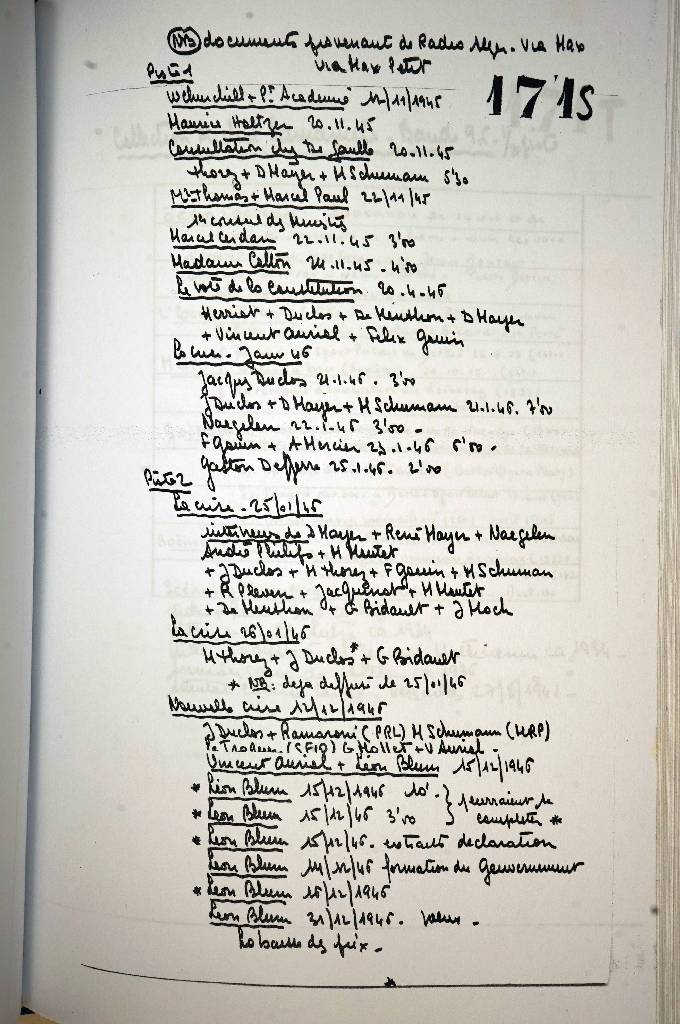 NB documents provenant de Radio Alger. Via Max
via Max Petit
171S
Piste 1
W Churchill + Pt Academie 12/11/1945
Maurice Holtzer 20.11.45
Consultation chez De Gaulle 20.11.45
Thorez + D Mayer + M Schumann 5'30
Mr Thomas + Marcel Paul 22/11/45
1er conseil des Ministres
Marcel Cerdan 22.11.45 3'00
Madame Cotton 24.11.45 - 4'00
Le vote de la Constitution 20.4.46
Herriot + Duclos + De Menthon + D Mayer
+ Vincent Auriol + Felix Gouin
La crise - Janv 46
Jacques Duclos 21.1.46. 3'00
J Duclos + D Mayer + M Schumann 21.1.46. 7'00
Naegelen 22.1.46 3'00 -
F Gouin + A Mercier 23.1.46 6'00 -
Gaston Defferre 25.1.46. 2'00
Piste 2
La crise - 25/01/46
interviews de D Mayer + René Mayer + Naegelen
André Philip + M Moutet
+ J Duclos + M Thorez + F Gouin + M Schuman
+ R Pleven + Jacquinot + M Moutet
+ De Menthon + G Bidault + J Moch
La crise 26/01/46
M Thorez + J Duclos* + G Bidault
* NB: deja diffusé le 25/01/46
Nouvelle crise 12/12/1946
J Duclos + Ramaroni (PRL) M Schumann (MRP)
(SFIO) G Mollet + V Auriol -
Vincent Auriol + Léon Blum 15/12/1946
* Léon Blum 15/12/1946 10'- } pourraient se
* Léon Blum 15/12/46 3'00 } completer *
* Léon Blum 15/12/46. extraits declaration
Léon Blum 14/12/46 formation du Gouvernement
* Léon Blum 16/12/1946
Léon Blum 31/12/1946. voeux -
La baisse des prix -